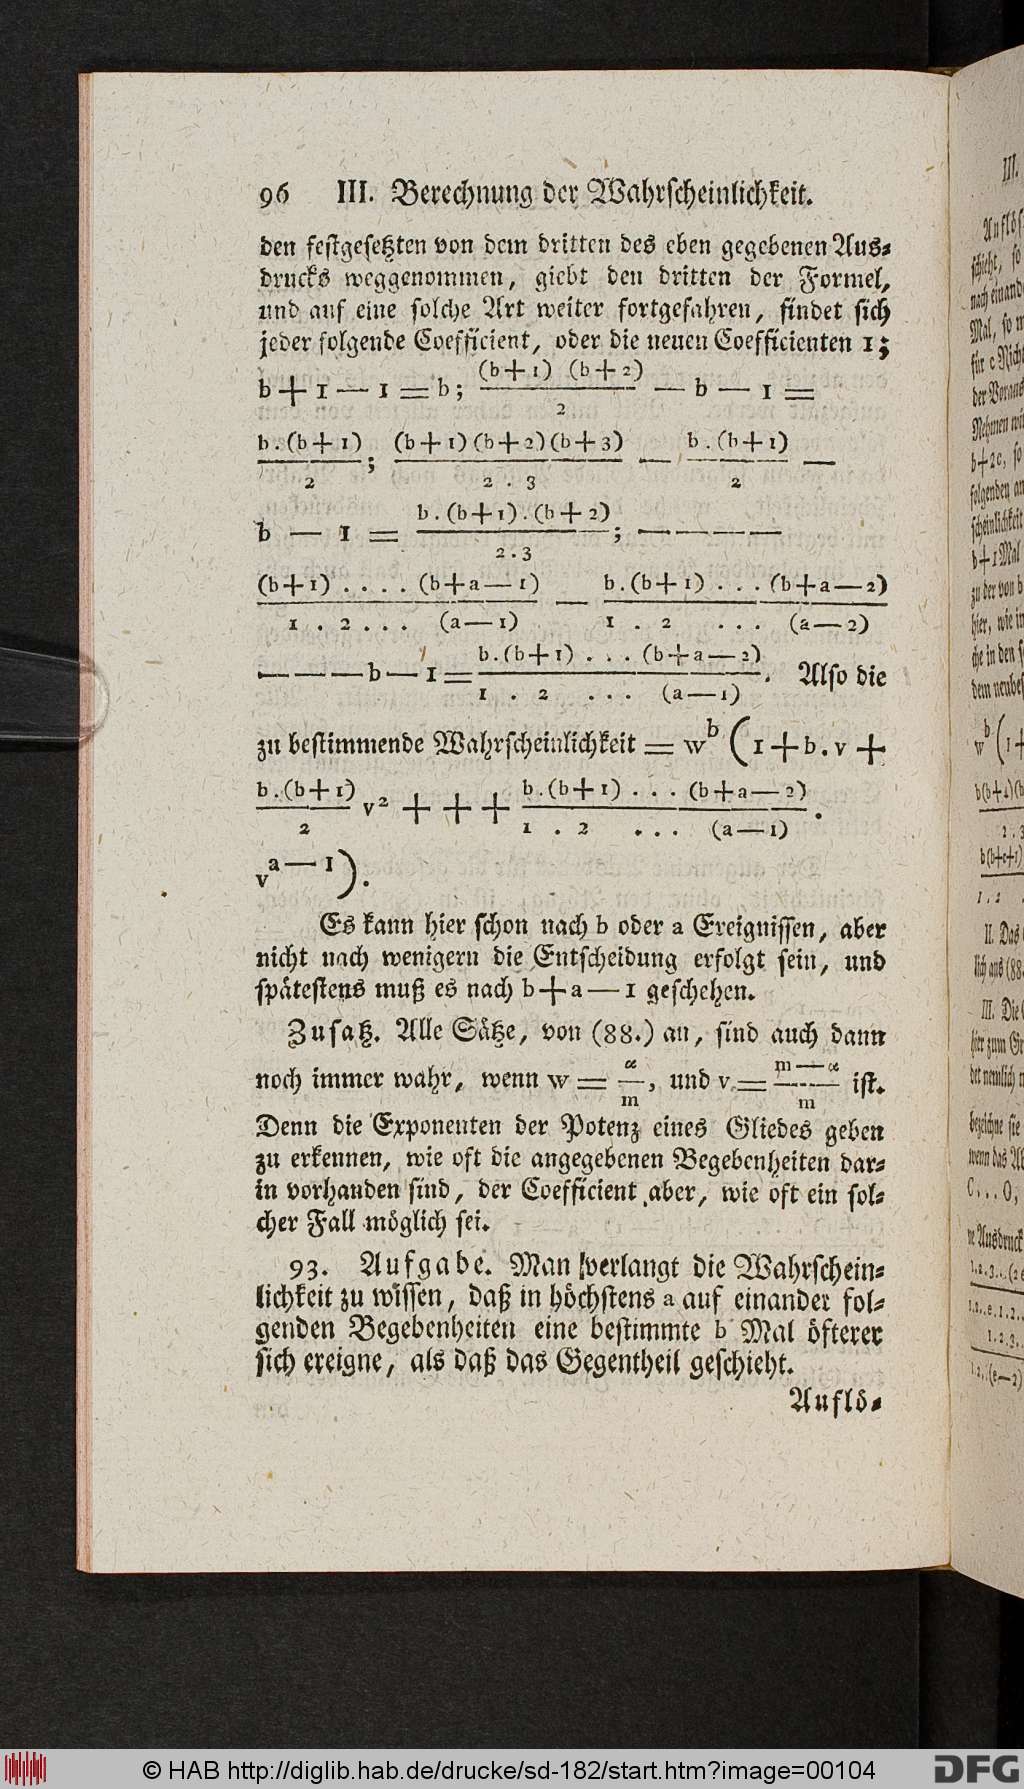 96 III. Berechnung der Wahrscheinlichkeit.
den festgesetzten von dem dritten des eben gegebenen Aus⸗
drucks weggenommen, giebt den dritten der Formel,
und auf eine solche Art weiter fortgefahren, findet sich
jeder folgende Coefficient, oder die neuen Coefficienten 1;
b + 1 — 1 = b; (b+1) (b+2) / 2 — b — 1 =
b.(b+1) / 2; (b+1)(b+2)(b+3) / 2 . 3 — b.(b+1) / 2 —
b — 1 = b.(b+1).(b+2) / 2.3; — — — —
(b+1) .... (b+a—1) / 1 . 2 ... (a—1) — b.(b+1) ... (b+a—2) / 1 . 2 ... (a—2)
— — — b — 1 = b.(b+1) ... (b+a—2) / 1 . 2 ... (a—1). Also die
zu bestimmende Wahrscheinlichkeit = w^b (1 + b.v +
b.(b+1) / 2 v² + + + b.(b+1) ... (b+a—2) / 1 . 2 ... (a—1) .
v^(a—1)).
Es kann hier schon nach b oder a Ereignissen, aber
nicht nach wenigern die Entscheidung erfolgt sein, und
spätestens muß es nach b+a—1 geschehen.
Zusatz. Alle Sätze, von (88.) an, sind auch dann
noch immer wahr, wenn w = α / m, und v = m—α / m ist.
Denn die Exponenten der Potenz eines Gliedes geben
zu erkennen, wie oft die angegebenen Begebenheiten dar⸗
in vorhanden sind, der Coefficient aber, wie oft ein sol⸗
cher Fall möglich sei.
93. Aufgabe. Man verlangt die Wahrschein⸗
lichkeit zu wissen, daß in höchstens a auf einander fol⸗
genden Begebenheiten eine bestimmte b Mal öfterer
sich ereigne, als daß das Gegentheil geschieht.
Auflö⸗
© HAB http://diglib.hab.de/drucke/sd-182/start.htm?image=00104
DFG